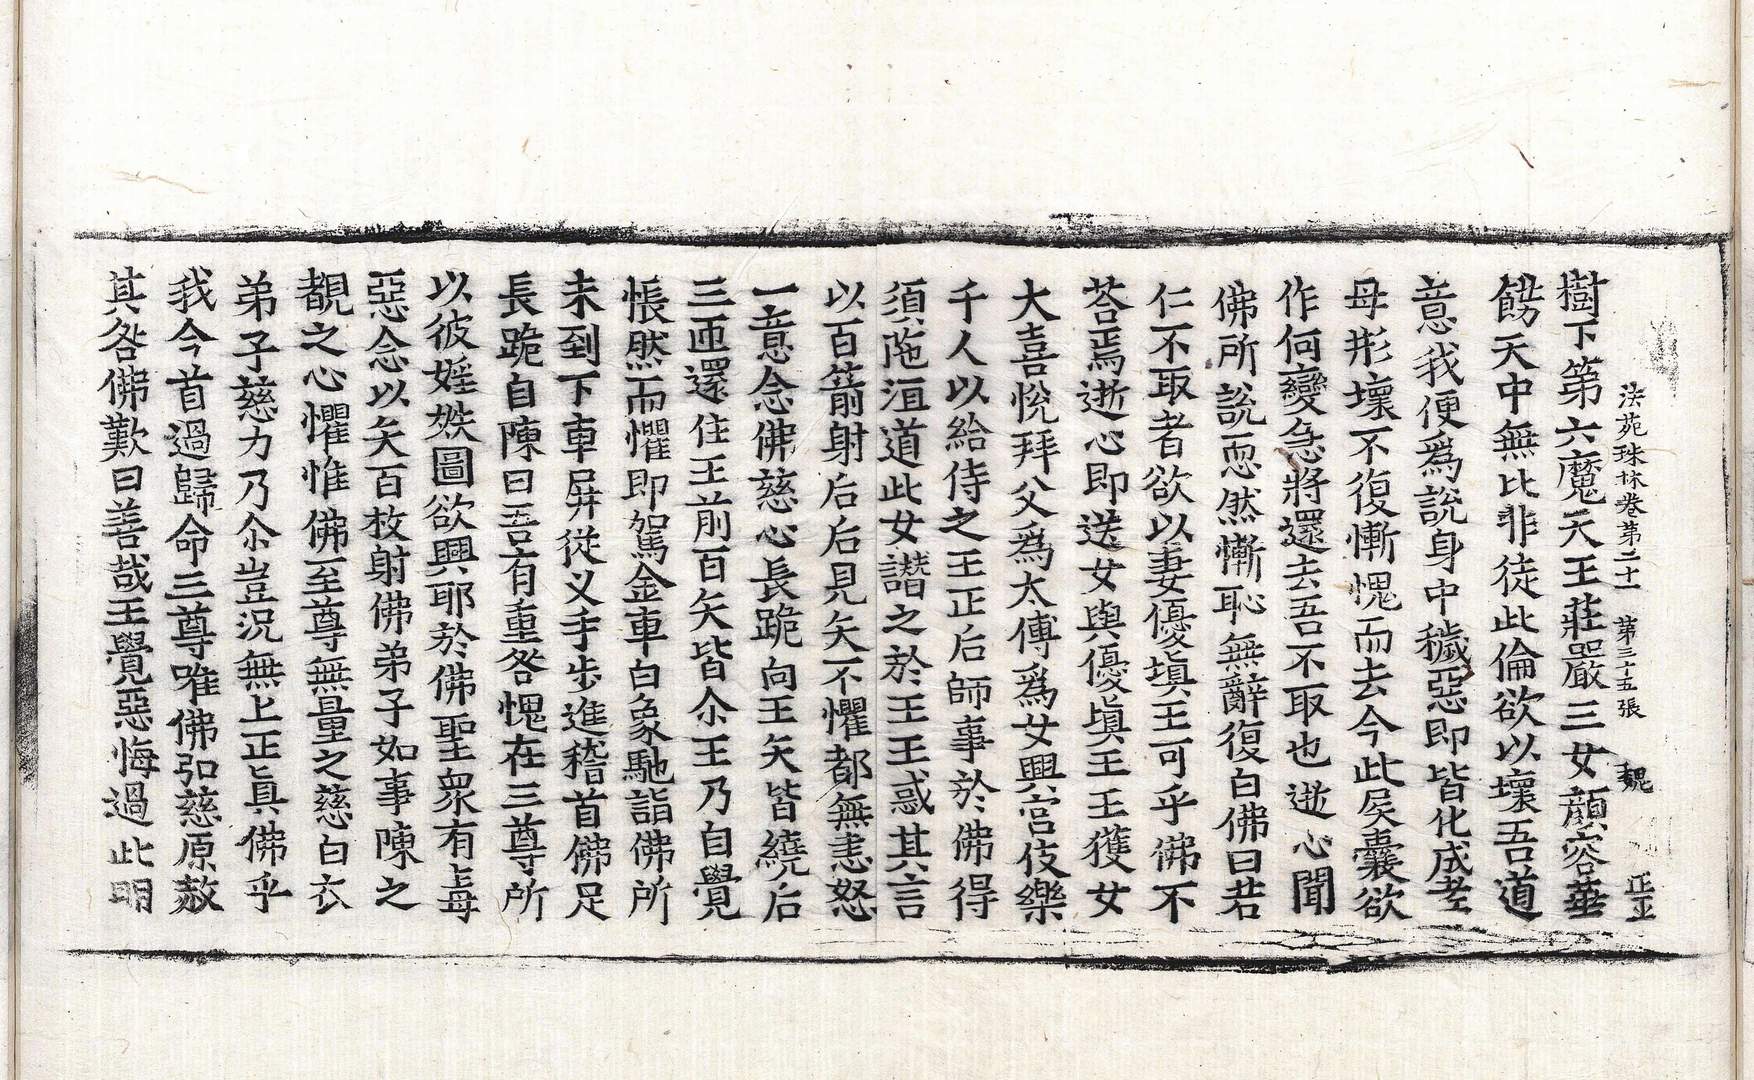 法苑珠林卷第二十一 第三十五張 魏 正正
樹下第六魔天王莊嚴三女顏容華
餝天中無比非徒此倫欲以壞吾道
意我便爲說身中穢惡即皆化成老
母形壞不復慚愧而去今此屎囊欲
作何變急將還去吾不取也逝心聞
佛所說恧然慚恥無辭復白佛曰若
仁不取者欲以妻優填王可乎佛不
荅焉逝心即送女與優填王王獲女
大喜悅拜父爲太傅爲女興宮伎樂
千人以給侍之王正后師事於佛得
須陁洹道此女譖之於王王惑其言
以百箭射后后見矢不懼都無恚怒
一意念佛慈心長跪向王矢皆繞后
三匝還住王前百矢皆尒王乃自覺
悵然而懼即駕金車白象馳詣佛所
未到下車屏從义手步進稽首佛足
長跪自陳曰吾有重咎愧在三尊所
以彼婬㛍圖欲興耶於佛聖衆有毒
惡念以矢百枚射佛弟子如事陳之
覩之心懼惟佛至尊無量之慈白衣
弟子慈力乃尒豈況無上正眞佛乎
我今首過歸命三尊唯佛弘慈原赦
其咎佛歎曰善哉王覺惡悔過此明